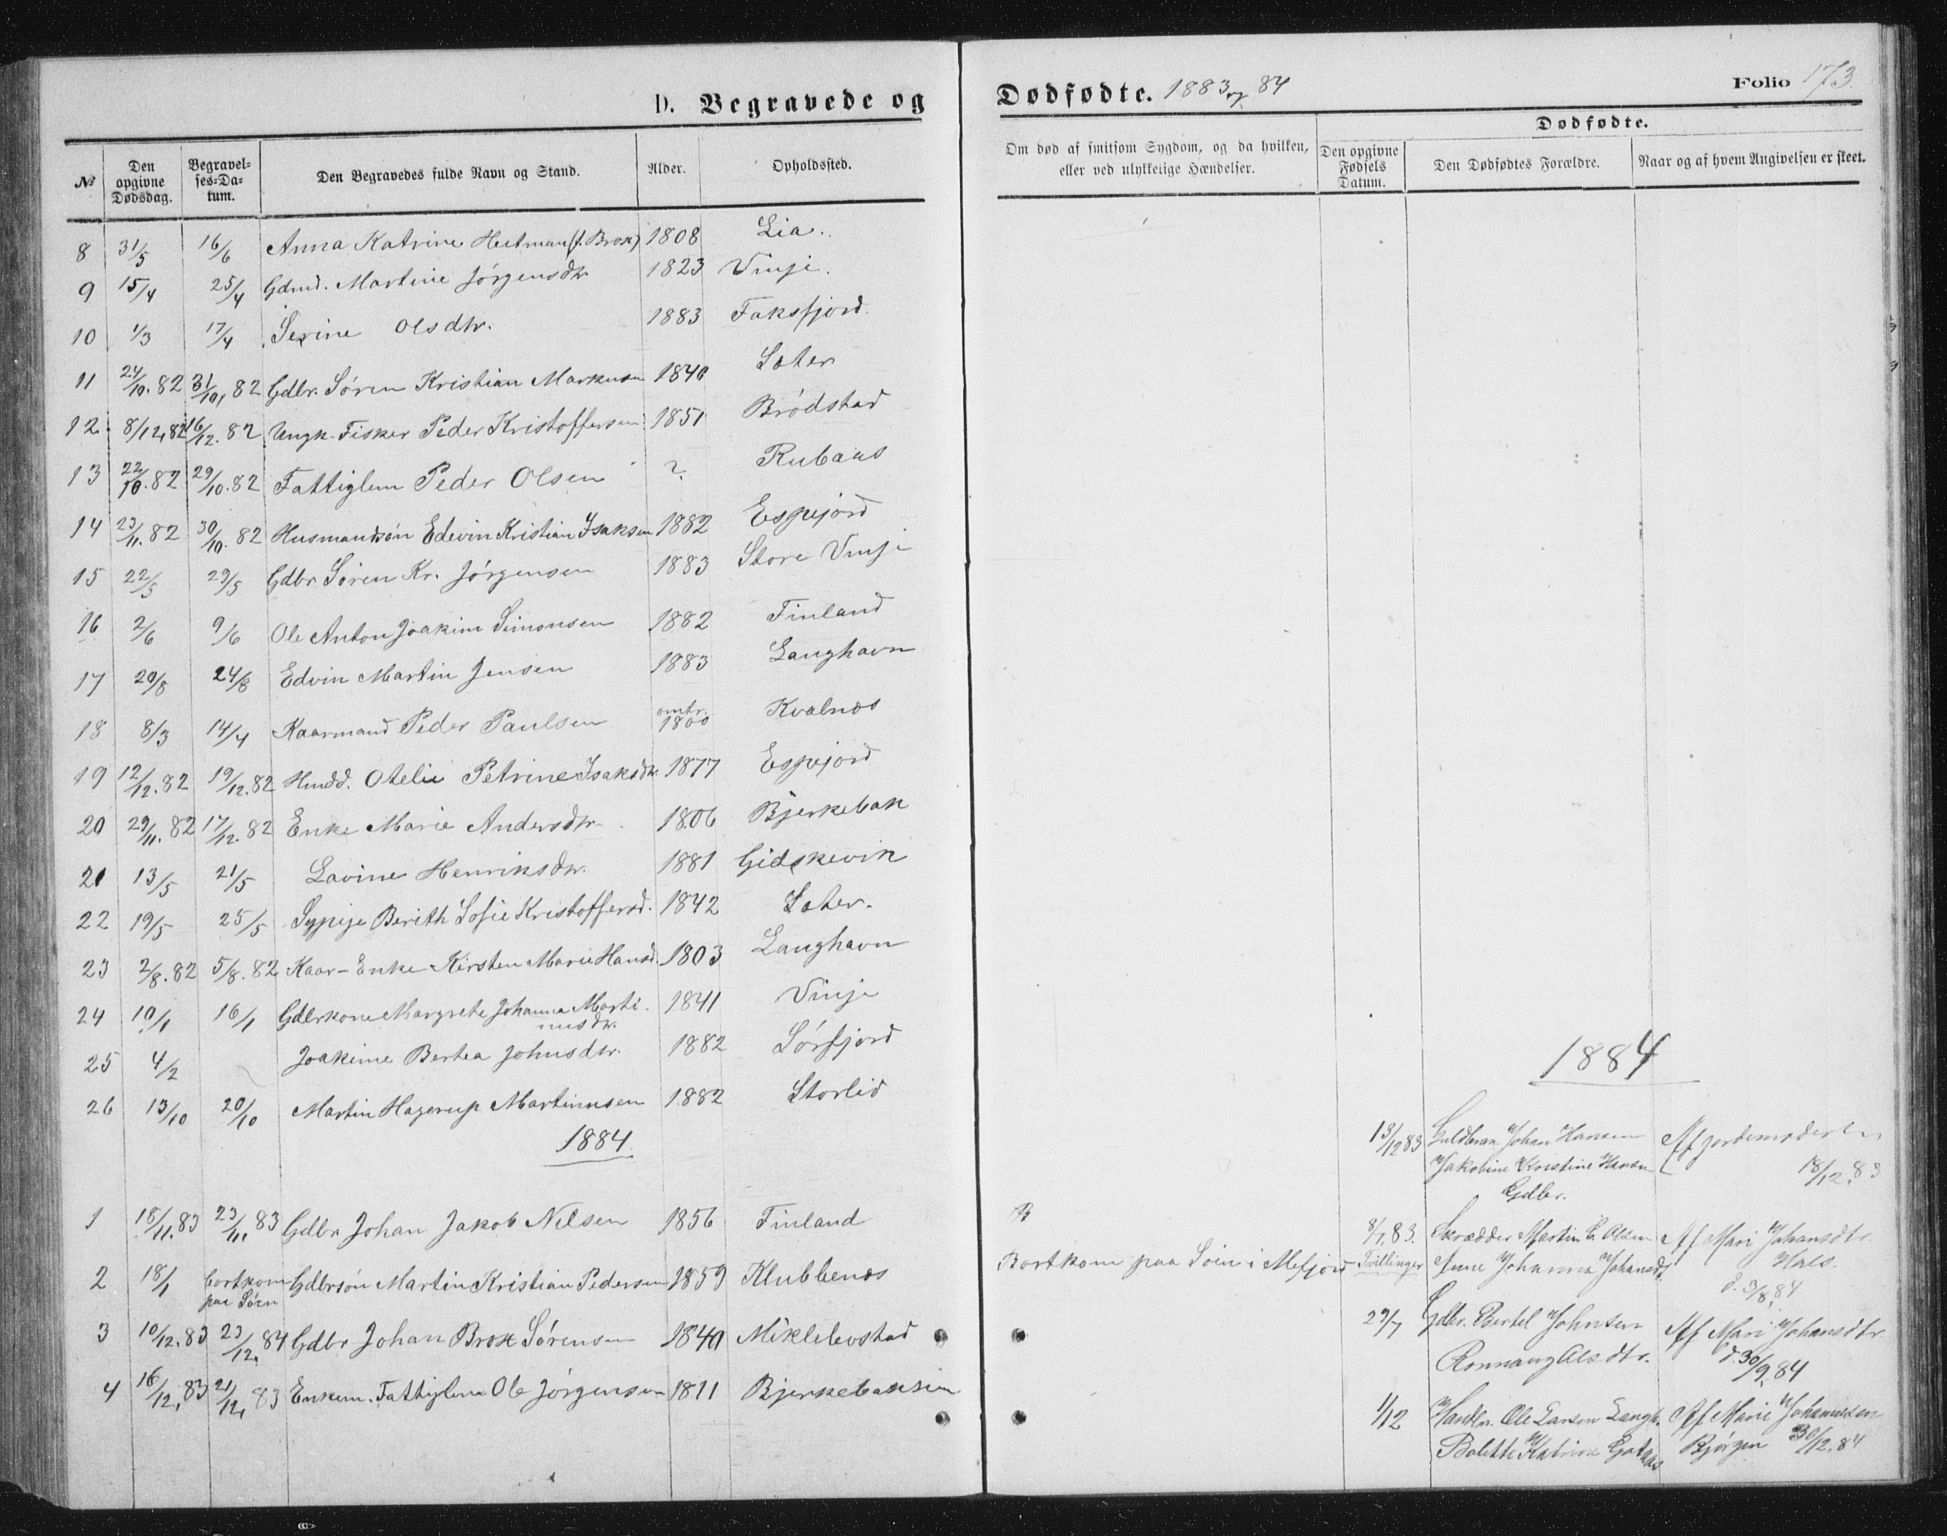 D. Begravede og
№
Den opgivne Dødsdag.
Begravel-ses-Da-tum.
Den Begravedes fulde Navn og Stand.
Alder.
Opholdssted.
8 31/5 16/6 Anna Katrine Heitman (f. Brox) 1808 Lia.
9 15/4 25/4 Gdmd. Martine Jørgensdtr 1823 Vinje.
10 1/3 17/4 Serine Olsdtr. 1883 Faksfjord.
11 24/10.82 31/10.82 Gdbr. Søren Kristian Markusen 1840 Sæter
12. 8/12.82 16/12.82 Ungk. Fisker Peder Kristoffersen 1851 Brødstad
13 22/10.82 29/10.82 Fattiglem Peder Olsen ? Rubaas
14 23/11.82 30/10.82 Husmandsøn Edevin Kristian Isaksen 1882 Espejord
15 22/5 29/5 Gdbr Søren Kr. Jørgensen 1883 Store Vinje
16 2/6 9/6 Ole Anton Joakim Simonsen 1882 Finland
17 20/8 24/8 Edvin Martin Jensen 1883 Langhavn
18 8/3 14/4 Kaarmand Peder Paulsen omtr. 1800 Kvalnæs
19 12/12.82 19/12.82 Hmdd. Otelie Petrine Isaksdtr 1877 Espejord
20 29/11.82 17/12.82 Enke Marie Andersdtr 1806 Bjerkebak
21 13/5 21/5 Lavine Henriksdtr. 1881 Gidskevik
22 19/5 25/5 Sypige Berith Sofie Kristoffersd. 1842 Sæter.
23 2/8.82 5/8.82 Kaar-Enke Kirsten Marie Hansd. 1803 Langhavn
24 10/1 16/1 Gdbrkone Margrete Johanna Martinusdtr. 1841 Vinje
25 4/2 Joakime Bertea Johnsdtr. 1882 Sørfjord
26 13/10 20/10 Martin Hagerup Martinusen 1882 Storlid
1884.
1 18/11.83 23/11.83 Gdbr Johan Jakob Nilsen 1856 Finland
2 18/1 bortkom paa Søen Gdbrsøn Martin Kristian Pedersen 1859 Klubbenæs
3 10/12.83 23/12.84 Gdbr Johan Brox Sørensen 1840 Miklebostad
4 16/12.83 21/12.83 Enkem. Fattiglem Ole Jørgensen 1811 Bjerkebaksen
Dødfødte. 1883 og 84
Folio 173
Om død af smitsom Sygdom, og da hvilken,
eller ved ulykkelige Hændelser.
Dødfødte.
Den opgivne Fødsels Datum.
Den Dødfødtes Forældre.
Naar og af hvem Angivelsen er skeet.
1884
13/12 83 Guldbran Johan Hansen Af Jordemoderen
Jakobine Kristine Hansen 18/12.83
Gdbr.
8/7.83. Skrædder Martin E Olsen Af Mari Johansdtr.
Bortkom paa Søen i Mefjord Tvillinger Ane Johanna Johansd. Hals.
d. 3/8.84
29/7 Gdbr. Bertel Johnsen Af Mari Johansdtr
Ronnaug Olsdtr. d. 30/9.84
1/12 Handlr. Ole Larsen Langh. Af Marie Johannesen
Bolette Katrine Gotaas Bjørgen 30/12.84